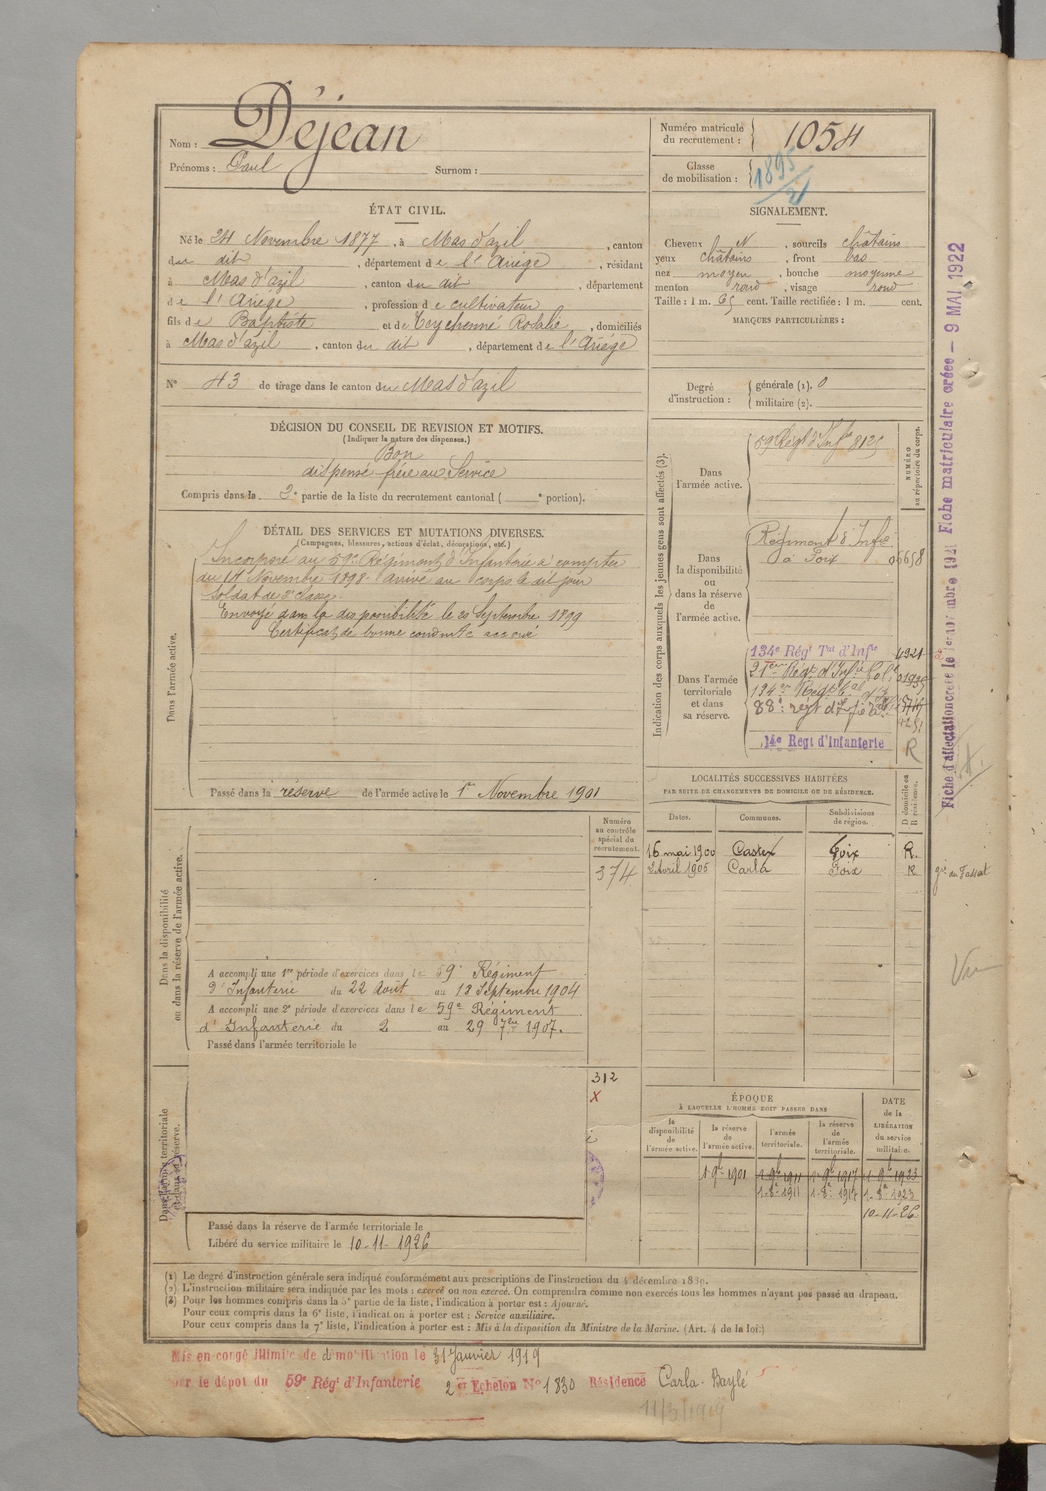 Nom : Déjean
Prénoms : Paul Surnom :
Numéro matricule du recrutement : 1054
Classe de mobilisation : 1895/21
ÉTAT CIVIL.
Né le 24 Novembre 1877, à Mas d'azil, canton
du dit, département de l'Ariège, résidant
à Mas d'azil, canton du dit, département
de l'Ariège, profession de cultivateur
fils de Baptiste et de Teychenné Rosalie, domiciliés
à Mas d'azil, canton du dit, département de l'Ariège
N° 43 de tirage dans le canton du Mas d'azil
SIGNALEMENT.
Cheveux N, sourcils châtains
yeux châtains, front bas
nez moyen, bouche moyenne
menton rond, visage rond
Taille : 1 m. 65 cent. Taille rectifiée : 1 m. cent.
MARQUES PARTICULIÈRES :
Degré d'instruction : générale (1). 0
militaire (2).
DÉCISION DU CONSEIL DE REVISION ET MOTIFS.
(Indiquer la nature des dispenses.)
Bon
dispensé frère au Service
Compris dans la 2e partie de la liste du recrutement cantonal ( e portion).
DÉTAIL DES SERVICES ET MUTATIONS DIVERSES.
(Campagnes, blessures, actions d'éclat, décorations, etc.)
Dans l'armée active.
Incorporé au 59e Régiment d'Infanterie à compter
du 14 Novembre 1898. Arrivé au corps le dit jour
Soldat de 2e classe.
Envoyé dans la disponibilité le 20 Septembre 1899
Certificat de bonne conduite accordé
Passé dans la réserve de l'armée active le 1er Novembre 1901
Indication des corps auxquels les jeunes gens sont affectés (3).
NUMÉRO au répertoire du corps.
Dans l'armée active.
59 Régt d'Infie 8125
Dans la disponibilité ou dans la réserve de l'armée active.
Régiment d'Infie
à Foix 05658
Dans l'armée territoriale et dans sa réserve.
134e Régt Tal d'Infie 4321
21er Régt d'Infie Colle
134e Régt
88e régt d'Infie
14e Régt d'Infanterie R
LOCALITÉS SUCCESSIVES HABITÉES
PAR SUITE DE CHANGEMENTS DE DOMICILE OU DE RÉSIDENCE.
Dates. Communes. Subdivisions de région. D domicile ou R résidence.
16 mai 1900 Castex Foix R.
2 Avril 1905 Carla Foix R
Numéro au contrôle spécial du recrutement.
374
Dans la disponibilité ou dans la réserve de l'armée active.
A accompli une 1re période d'exercices dans le 59e Régiment
d'Infanterie du 22 Août au 18 Septembre 1904
A accompli une 2e période d'exercices dans le 59e Régiment
d'Infanterie du 2 au 29 7bre 1907.
Passé dans l'armée territoriale le
312
X
Dans l'armée territoriale et dans sa réserve.
Passé dans la réserve de l'armée territoriale le
Libéré du service militaire le 10-11-1926
ÉPOQUE
À LAQUELLE L'HOMME DOIT PASSER DANS
DATE de la LIBÉRATION du service militaire.
la disponibilité de l'armée active. la réserve de l'armée active. l'armée territoriale. la réserve de l'armée territoriale.
1-9b-1901 1-9b-1911 1-9b-1917 1-9b-1923
1-8e-1911 1-8e-1917 1-8e-1923
10-11-26
(1) Le degré d'instruction générale sera indiqué conformément aux prescriptions de l'instruction du 4 décembre 1889.
(2) L'instruction militaire sera indiquée par les mots : exercé ou non exercé. On comprendra comme non exercés tous les hommes n'ayant pas passé au drapeau.
(3) Pour les hommes compris dans la 5e partie de la liste, l'indication à porter est : Ajourné.
Pour ceux compris dans la 6e liste, l'indication à porter est : Service auxiliaire.
Pour ceux compris dans la 7e liste, l'indication à porter est : Mis à la disposition du Ministre de la Marine. (Art. 4 de la loi.)
Mis en congé illimité de démobilisation le 31 Janvier 1919
par le dépôt du 59e Régt d'Infanterie 2e Echelon N° 1830 Résidence Carla-Baylé
11/3/1919
Fiche matriculaire créée - 9 MAI 1922
Vu